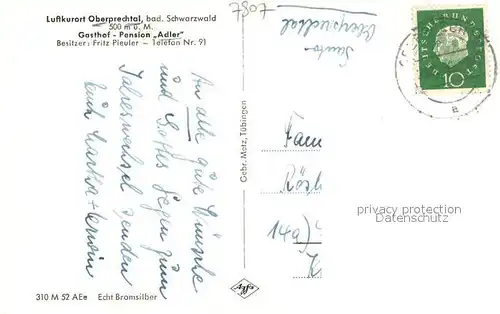 Luftkurort Oberprechtal, bad. Schwarzwald
500 m ü. M.
Gasthof - Pension „Adler"
Besitzer: Fritz Pleuler — Telefon Nr. 91
7807
Oberprechtal
DEUTSCHE BUNDESPOST
10
An alle gute Wünsche
und Gottes Segen zum
Jahreswechsel senden
Euch Martha + Erwin
Gebr. Metz, Tübingen
Fam
14a)
privacy protection
Datenschutz
Agfa
310 M 52 AEe Echt Bromsilber